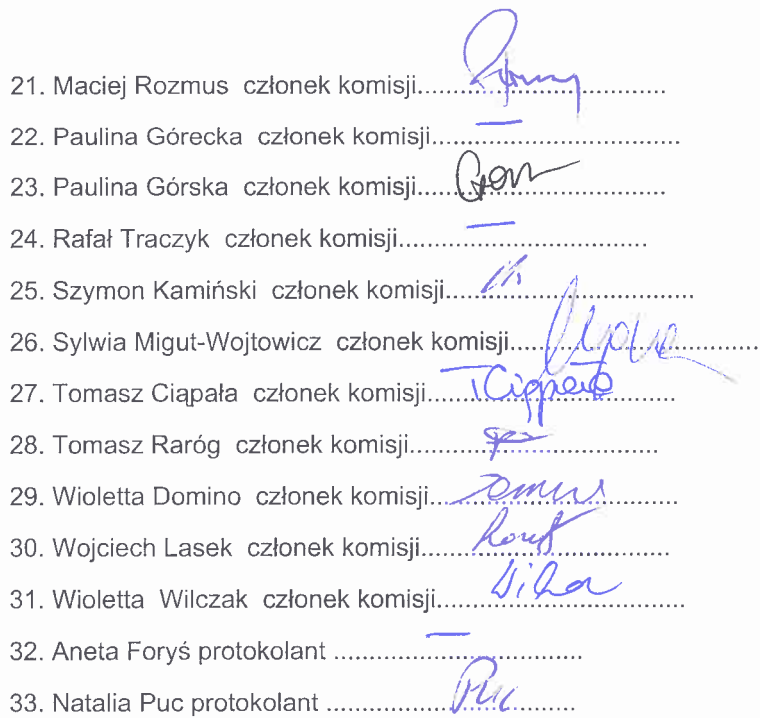 21. Maciej Rozmus członek komisji..................................
22. Paulina Górecka członek komisji..................................
23. Paulina Górska członek komisji..................................
24. Rafał Traczyk członek komisji..................................
25. Szymon Kamiński członek komisji..................................
26. Sylwia Migut-Wojtowicz członek komisji..................................
27. Tomasz Ciąpała członek komisji.....TCiąpała.....
28. Tomasz Raróg członek komisji..................................
29. Wioletta Domino członek komisji..................................
30. Wojciech Lasek członek komisji..................................
31. Wioletta Wilczak członek komisji..................................
32. Aneta Foryś protokolant ..................................
33. Natalia Puc protokolant .................Puc.........